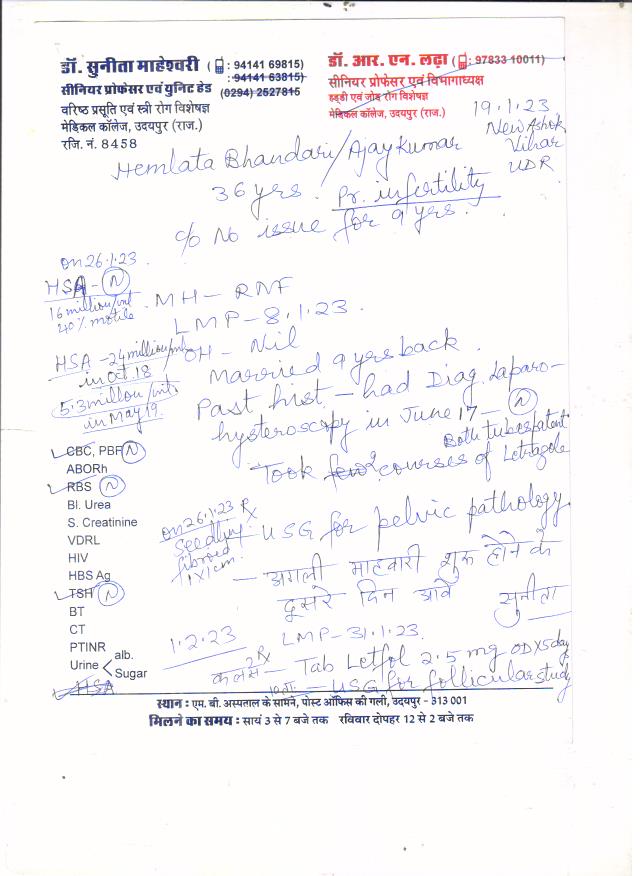 डॉ. सुनीता माहेश्वरी ( : 94141 69815)
: 94141 63815)
सीनियर प्रोफेसर एवं यूनिट हेड (0294) 2527815
वरिष्ठ प्रसूति एवं स्त्री रोग विशेषज्ञ
मेडिकल कॉलेज, उदयपुर (राज.)
रजि. नं. 8458
डॉ. आर. एन. लढ़ा ( : 97833 10011)
सीनियर प्रोफेसर एवं विभागाध्यक्ष
हड्डी एवं जोड़ रोग विशेषज्ञ
मेडिकल कॉलेज, उदयपुर (राज.)
19.1.23
New Ashok
Vihar
UDR
Hemlata Bhandari/Ajay Kumar
36 yrs. Pr. infertility
c/o No issue for 9 yrs.
on 26.1.23
HSA - N
16 million/ml
40% motile
MH - RNF
LMP - 8.1.23.
HSA - 24 million/ml
in Oct 18
5.3 million/ml
in May 19.
OH - Nil
Married 9 yrs back.
Past hist - had Diag. Laparo-
hysteroscopy in June 17 - N
Both tubes patent
Took few courses of Letrazole
CBC, PBF N
ABORh
RBS N
Bl. Urea
S. Creatinine
VDRL
HIV
HBS Ag
TSH N
BT
CT
PTINR
Urine alb.
Sugar
HSA
on 26.1.23
Seedling
fibroid
1x1cm.
Rx
USG for pelvic pathology
- अगली माहवारी शुरू होने के
दूसरे दिन आवें
सुनीता
1.2.23
LMP - 31.1.23.
Rx
- Tab Letfol 2.5 mg OD x 5 day
- USG for follicular study
स्थान : एम. बी. अस्पताल के सामने, पोस्ट ऑफिस की गली, उदयपुर - 313 001
मिलने का समय : सायं 3 से 7 बजे तक रविवार दोपहर 12 से 2 बजे तक